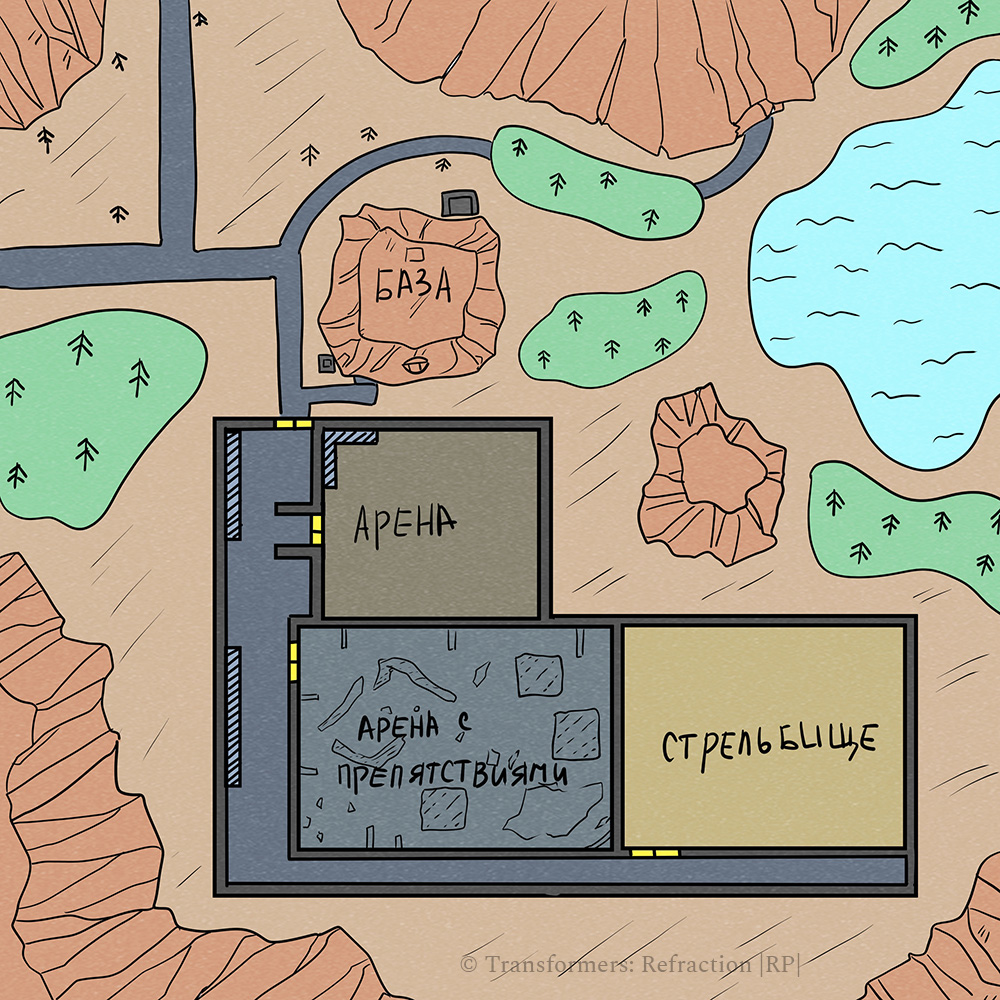 БАЗА
АРЕНА
АРЕНА С
ПРЕПЯТСТВИЯМИ
СТРЕЛЬБИЩЕ
© Transformers: Refraction |RP|